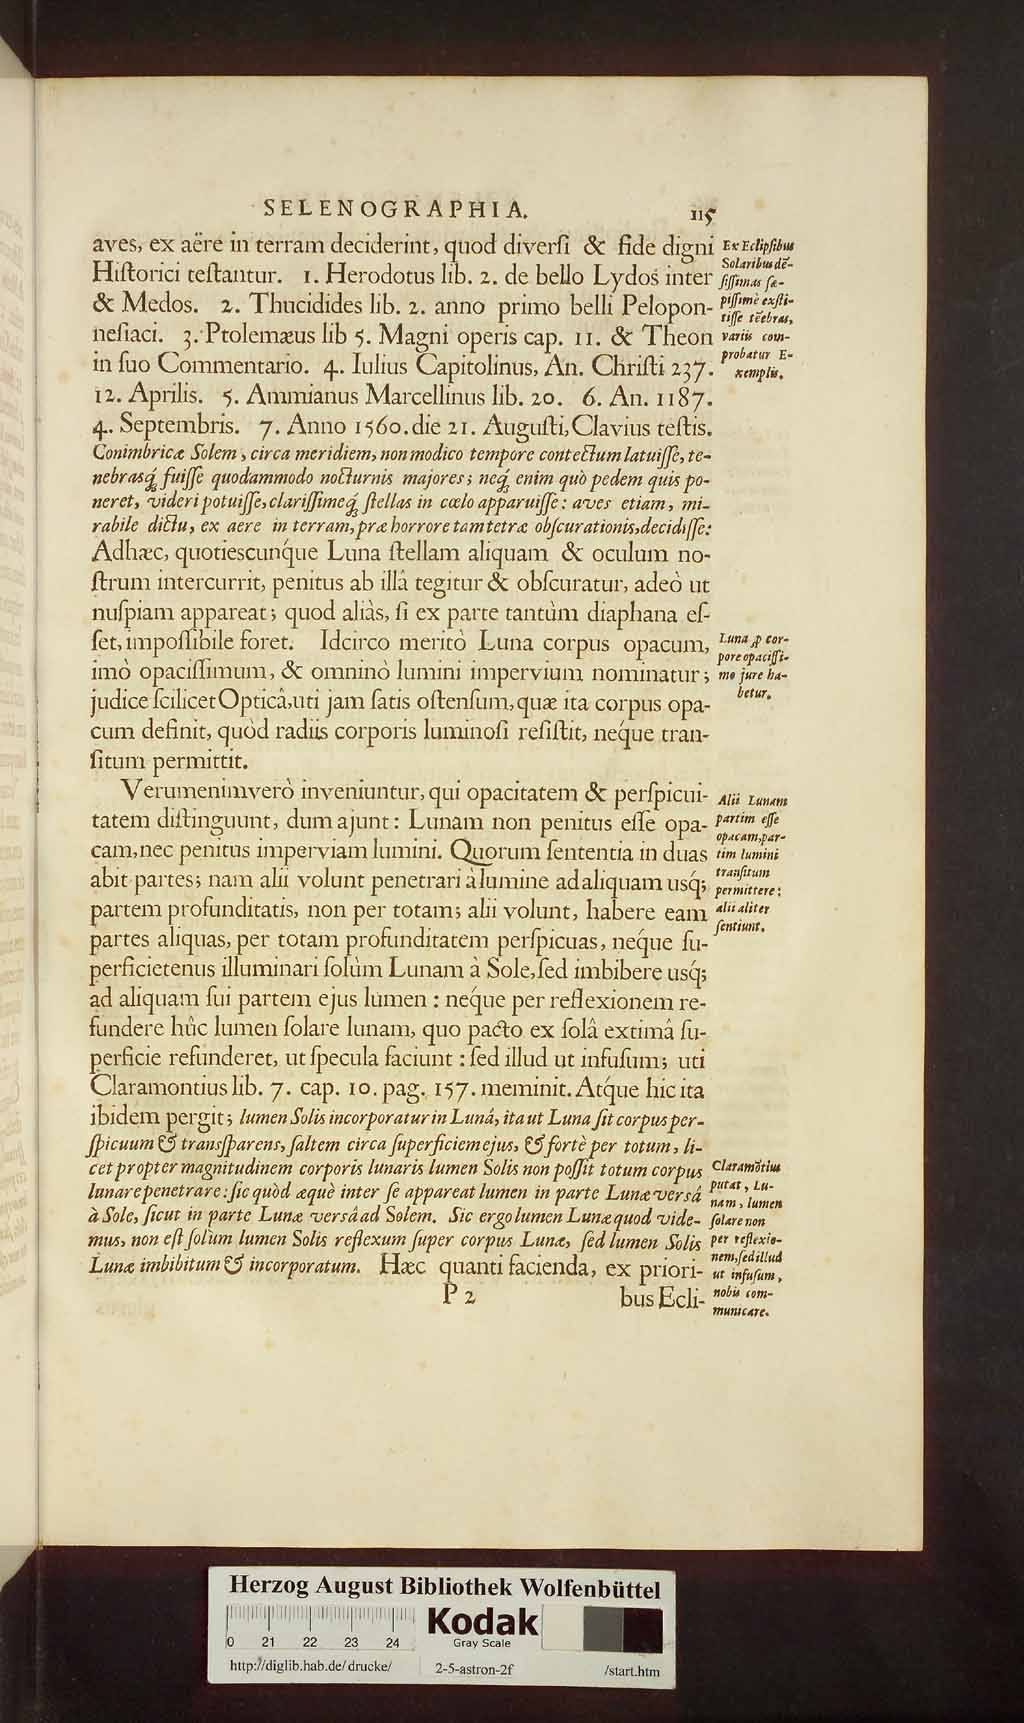 SELENOGRAPHIA. 115
aves, ex aëre in terram deciderint, quod diversi & fide digni
Historici testantur. 1. Herodotus lib. 2. de bello Lydos inter
& Medos. 2. Thucidides lib. 2. anno primo belli Pelopon-
nesiaci. 3. Ptolemæus lib 5. Magni operis cap. 11. & Theon
in suo Commentario. 4. Iulius Capitolinus, An. Christi 237.
12. Aprilis. 5. Ammianus Marcellinus lib. 20. 6. An. 1187.
4. Septembris. 7. Anno 1560. die 21. Augusti, Clavius testis.
Conimbricæ Solem, circa meridiem, non modico tempore contectum latuisse, te-
nebrasq́; fuisse quodammodo nocturnis majores; neq́; enim quò pedem quis po-
neret, videri potuisse, clarissimeq́; stellas in cœlo apparuisse: aves etiam, mi-
rabile dictu, ex aere in terram, præ horrore tam tetræ obscurationis, decidisse:
Adhæc, quotiescunq́ue Luna stellam aliquam & oculum no-
strum intercurrit, penitus ab illâ tegitur & obscuratur, adeò ut
nuspiam appareat; quod aliàs, si ex parte tantùm diaphana es-
set, impossibile foret. Idcirco meritò Luna corpus opacum,
imò opacissimum, & omninò lumini impervium nominatur;
judice scilicet Opticâ, uti jam satis ostensum, quæ ita corpus opa-
cum definit, quòd radiis corporis luminosi resistit, neq́ue tran-
situm permittit.
Verumenimverò inveniuntur, qui opacitatem & perspicui-
tatem distinguunt, dum ajunt: Lunam non penitus esse opa-
cam, nec penitus imperviam lumini. Quorum sententia in duas
abit partes; nam alii volunt penetrari à lumine ad aliquam usq́;
partem profunditatis, non per totam; alii volunt, habere eam
partes aliquas, per totam profunditatem perspicuas, neq́ue su-
perficietenus illuminari solùm Lunam à Sole, sed imbibere usq́;
ad aliquam sui partem ejus lumen: neq́ue per reflexionem re-
fundere hûc lumen solare lunam, quo pacto ex solâ extimâ su-
perficie refunderet, ut specula faciunt: sed illud ut infusum; uti
Claramontius lib. 7. cap. 10. pag. 157. meminit. Atq́ue hic ita
ibidem pergit; lumen Solis incorporatur in Lunâ, ita ut Luna sit corpus per-
spicuum & transsparens, saltem circa superficiem ejus, & fortè per totum, li-
cet propter magnitudinem corporis lunaris lumen Solis non possit totum corpus
lunare penetrare: sic quòd æquè inter se appareat lumen in parte Lunæ versâ
à Sole, sicut in parte Lunæ versâ ad Solem. Sic ergo lumen Lunæ quod vide-
mus, non est solùm lumen Solis reflexum super corpus Lunæ, sed lumen Solis
Lunæ imbibitum & incorporatum. Hæc quanti facienda, ex priori-
P 2 bus Ecli-
Ex Eclipsibus
Solaribus dē-
sissimas sæ-
pissimè exsti-
tisse tēebras,
variis com-
probatur E-
xemplis.
Luna p̱ cor-
pore opacissi-
mo jure ha-
betur.
Alii Lunam
partim esse
opacam, par-
tim lumini
transitum
permittere:
alii aliter
sentiunt.
Claramōtius
putat, Lu-
nam, lumen
solare non
per reflexio-
nem, sed illud
ut infusum,
nobis com-
municare.
Herzog August Bibliothek Wolfenbüttel
0 21 22 23 24
Kodak
Gray Scale
http://diglib.hab.de/drucke/ 2-5-astron-2f /start.htm